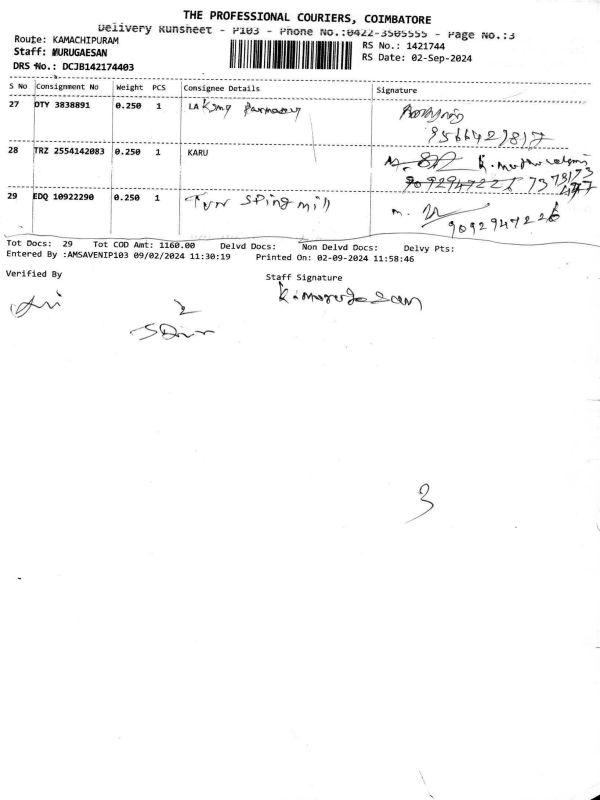 THE PROFESSIONAL COURIERS, COIMBATORE
Delivery Runsheet - P103 - Phone No.:0422-3505555 - Page No.:3
Route: KAMACHIPURAM
RS No.: 1421744
Staff: MURUGAESAN
RS Date: 02-Sep-2024
DRS No.: DCJB142174403
S No Consignment No Weight PCS Consignee Details Signature
27 DTY 3838891 0.250 1 LA
9566429817
28 TRZ 2554142083 0.250 1 KARU
29 EDQ 10922290 0.250 1 Turr Sping mill
9092947226
Tot Docs: 29 Tot COD Amt: 1160.00 Delvd Docs: Non Delvd Docs: Delvy Pts:
Entered By :AMSAVENIP103 09/02/2024 11:30:19 Printed On: 02-09-2024 11:58:46
Verified By Staff Signature
3